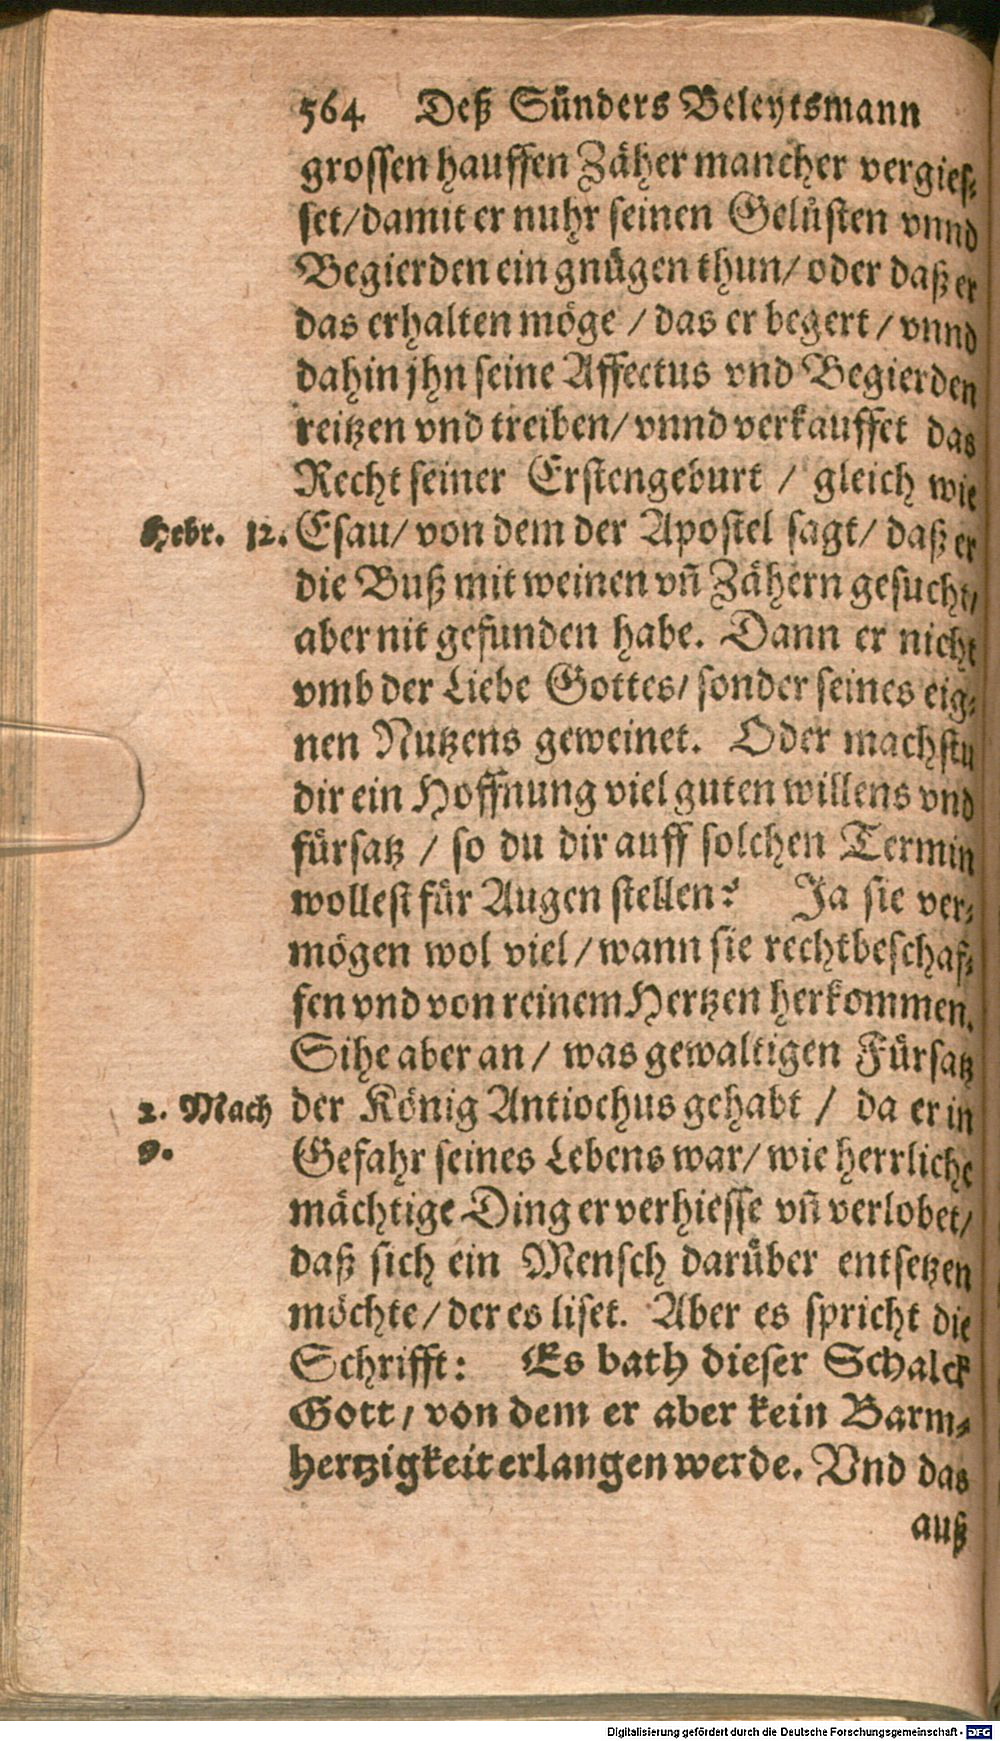 564 Deß Sünders Beleytsmann
grossen hauffen Zäher mancher vergies-
set/damit er nuhr seinen Gelüsten vnnd
Begierden ein gnügen thun/ oder daß er
das erhalten möge / das er begert / vnnd
dahin jhn seine Affectus vnd Begierden
reitzen vnd treiben/ vnnd verkauffet das
Recht seiner Erstengeburt / gleich wie
Hebr. 12. Esau/ von dem der Apostel sagt/ daß er
die Buß mit weinen vn̄ Zähern gesucht/
aber nit gefunden habe. Dann er nicht
vmb der Liebe Gottes/ sonder seines eig-
nen Nutzens geweinet. Oder machstu
dir ein Hoffnung viel guten willens vnd
fürsatz / so du dir auff solchen Termin
wollest für Augen stellen? Ja sie ver-
mögen wol viel / wann sie rechtbeschaf-
fen vnd von reinem Hertzen herkommen.
Sihe aber an / was gewaltigen Fürsatz
2. Mach der König Antiochus gehabt / da er in
9. Gefahr seines Lebens war/ wie herrliche
mächtige Ding er verhiesse vn̄ verlobet/
daß sich ein Mensch darüber entsetzen
möchte / der es liset. Aber es spricht die
Schrifft: Es bath dieser Schalck
Gott / von dem er aber kein Barm-
hertzigkeit erlangen werde. Vnd das
auß
Digitalisierung gefördert durch die Deutsche Forschungsgemeinschaft - DFG